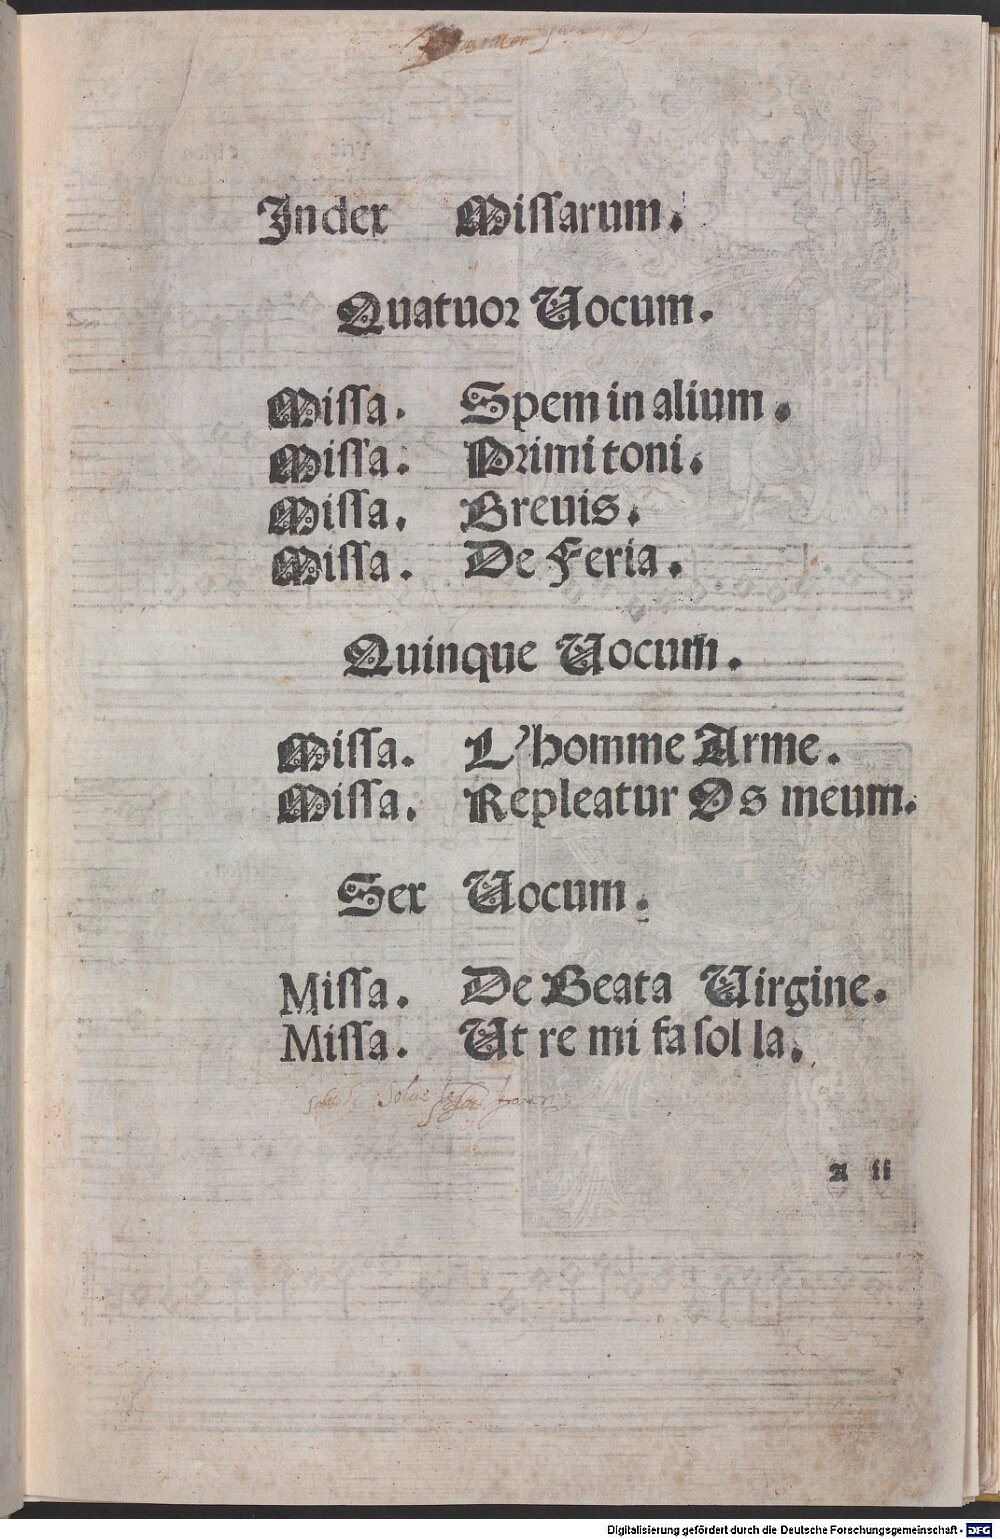 Index Missarum.
Quatuor Uocum.
Missa. Spem in alium.
Missa. Primi toni.
Missa. Breuis.
Missa. De Feria.
Quinque Uocum.
Missa. L'homme Arme.
Missa. Repleatur Os meum.
Sex Uocum.
Missa. De Beata Uirgine.
Missa. Ut re mi fa sol la.
A ii
Digitalisierung gefördert durch die Deutsche Forschungsgemeinschaft - DFG